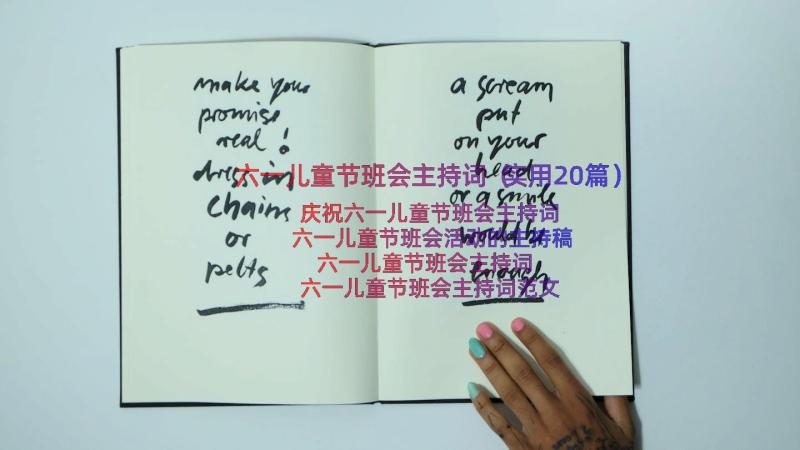 make your
promise
real!
dress in
chains
or
pelts
a scream
put
on your
head
or a smile
would be
enough
六一儿童节班会主持词（实用20篇）
庆祝六一儿童节班会主持词
六一儿童节班会活动的主持稿
六一儿童节班会主持词
六一儿童节班会主持词范文